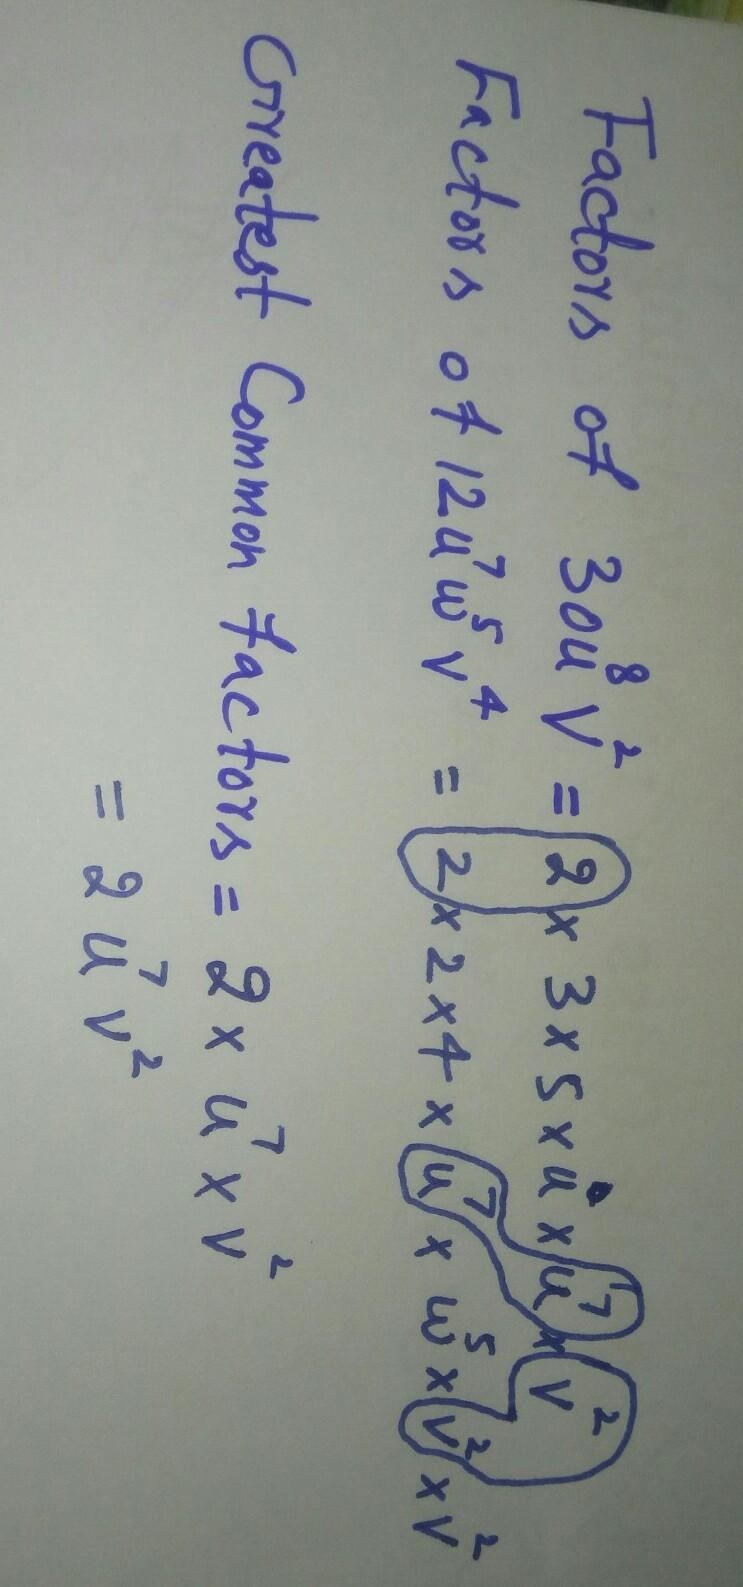 Factors of 30u⁸v² = 2 x 3 x 5 x u x u⁷ x v²
Factors of 12u⁷w⁵v⁴ = 2 x 2 x 4 x u⁷ x w⁵ x v² x v²
Greatest Common factors = 2 x u⁷ x v²
= 2u⁷v²